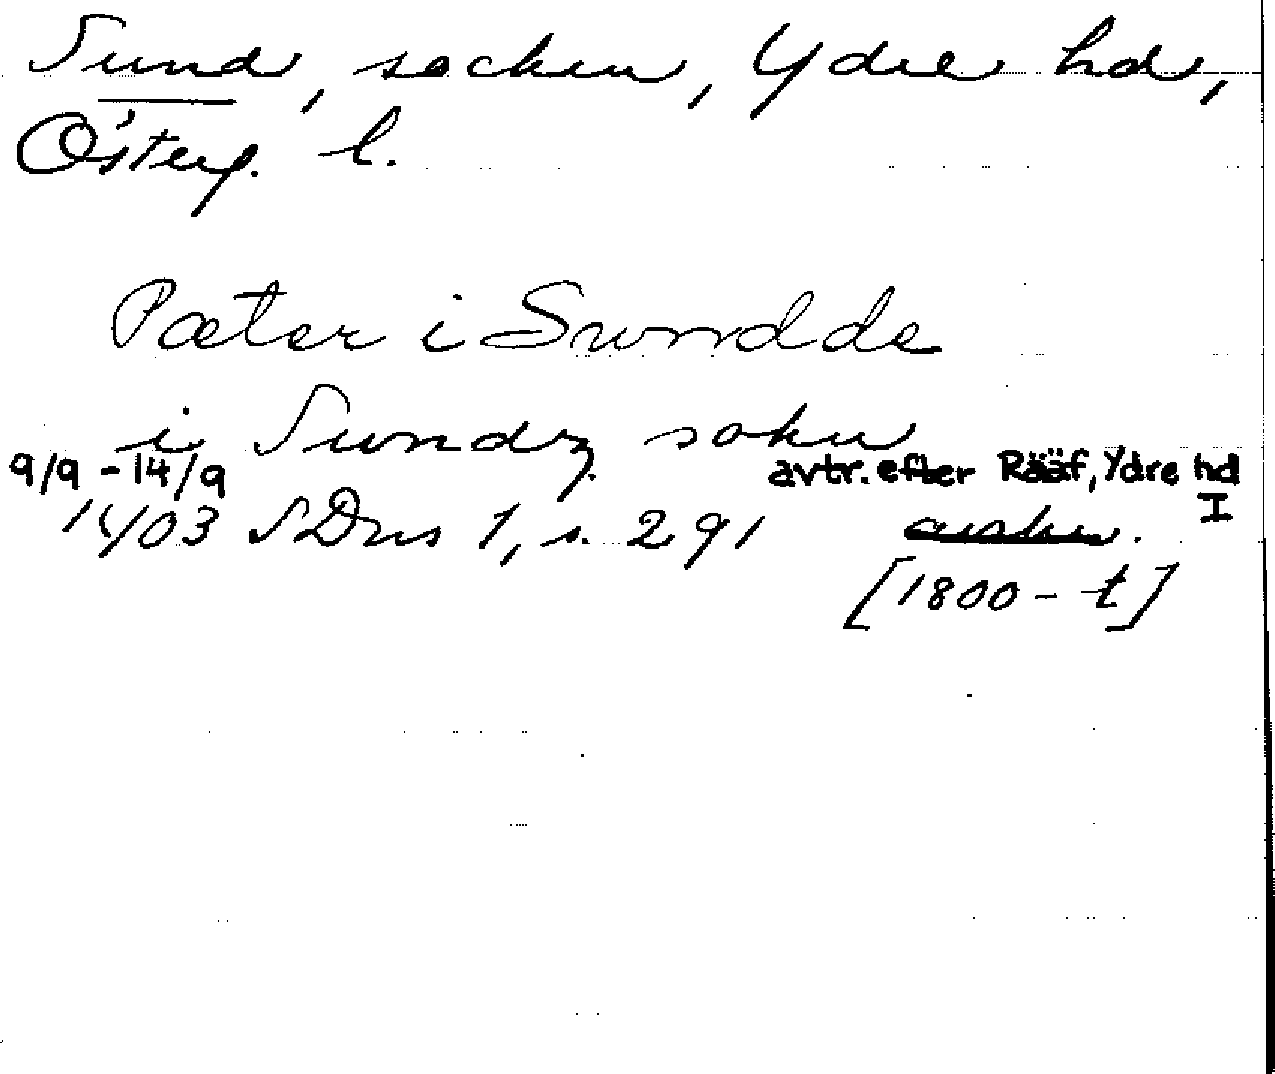 Sund, socken, Ydre hd,
Österg. l.
Pæter i Swndde
i Swndz sokn
9/9 - 14/9
avtr. efter Rääf, Ydre hd I
1403 SDns 1, s. 291
[1800 - t]